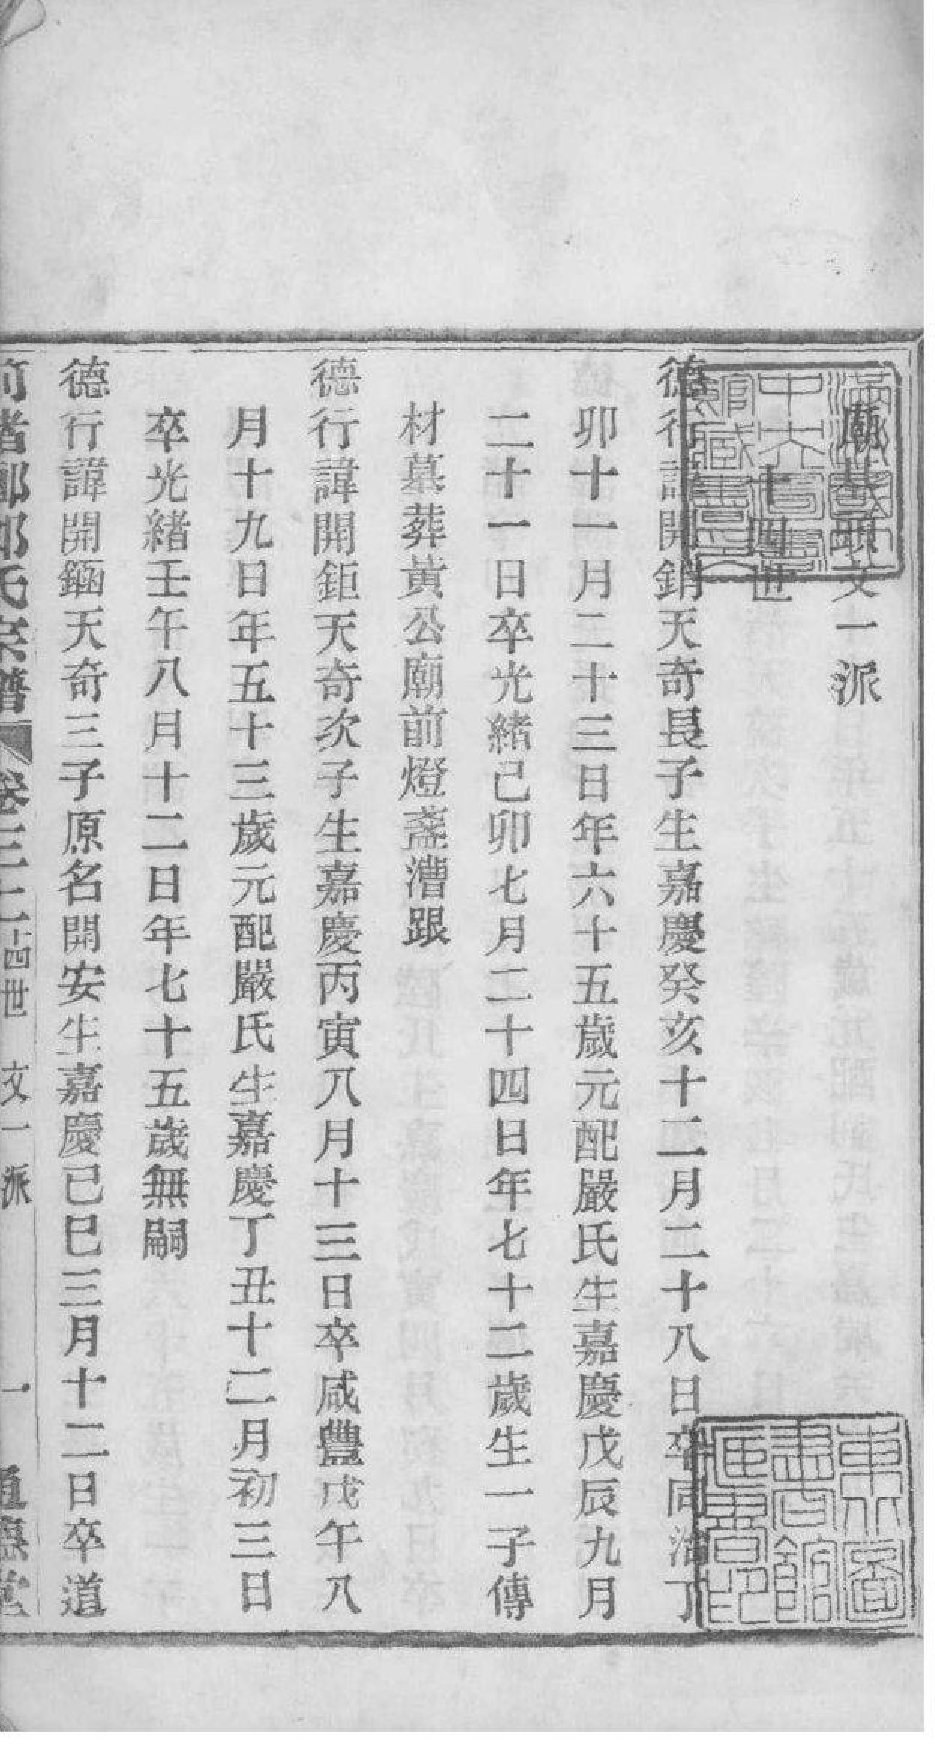 廟基頭文一派
十四世
德行諱開銷天奇長子生嘉慶癸亥十二月二十八日卒同治丁
卯十一月二十三日年六十五歲元配嚴氏生嘉慶戊辰九月
二十一日卒光緒己卯七月二十四日年七十二歲生一子傳
材墓葬黃公廟前燈盞漕跟
德行諱開鉅天奇次子生嘉慶丙寅八月十三日卒咸豐戊午八
月十九日年五十三歲元配嚴氏生嘉慶丁丑十二月初三日
卒光緒壬午八月十二日年七十五歲無嗣
德行諱開 天奇三子原名開安生嘉慶己巳三月十二日卒道
氏宗譜 卷三 二十四世 文一派 一 堂